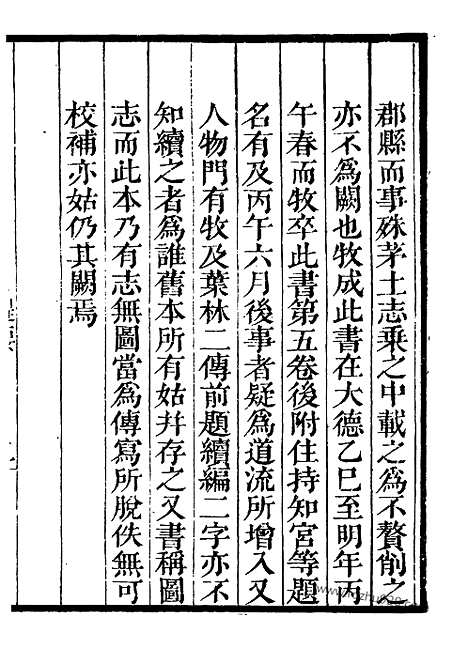 郡縣而事殊茅土志乘之中載之爲不贅削之
亦不爲闕也牧成此書在大德乙巳至明年丙
午春而牧卒此書第五卷後附住持知宮等題
名有及丙午六月後事者疑爲道流所增入又
人物門有牧及葉林二傳前題續編二字亦不
知續之者爲誰舊本所有姑幷存之又書稱圖
志而此本乃有志無圖當爲傳寫所脫佚無可
校補亦姑仍其闕焉